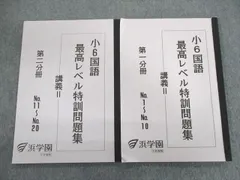 小6国語
最高レベル特訓問題集
講義II
第一分冊
No.1～No.10
浜学園
小6国語
最高レベル特訓問題集
講義II
第二分冊
No.11～No.20
浜学園